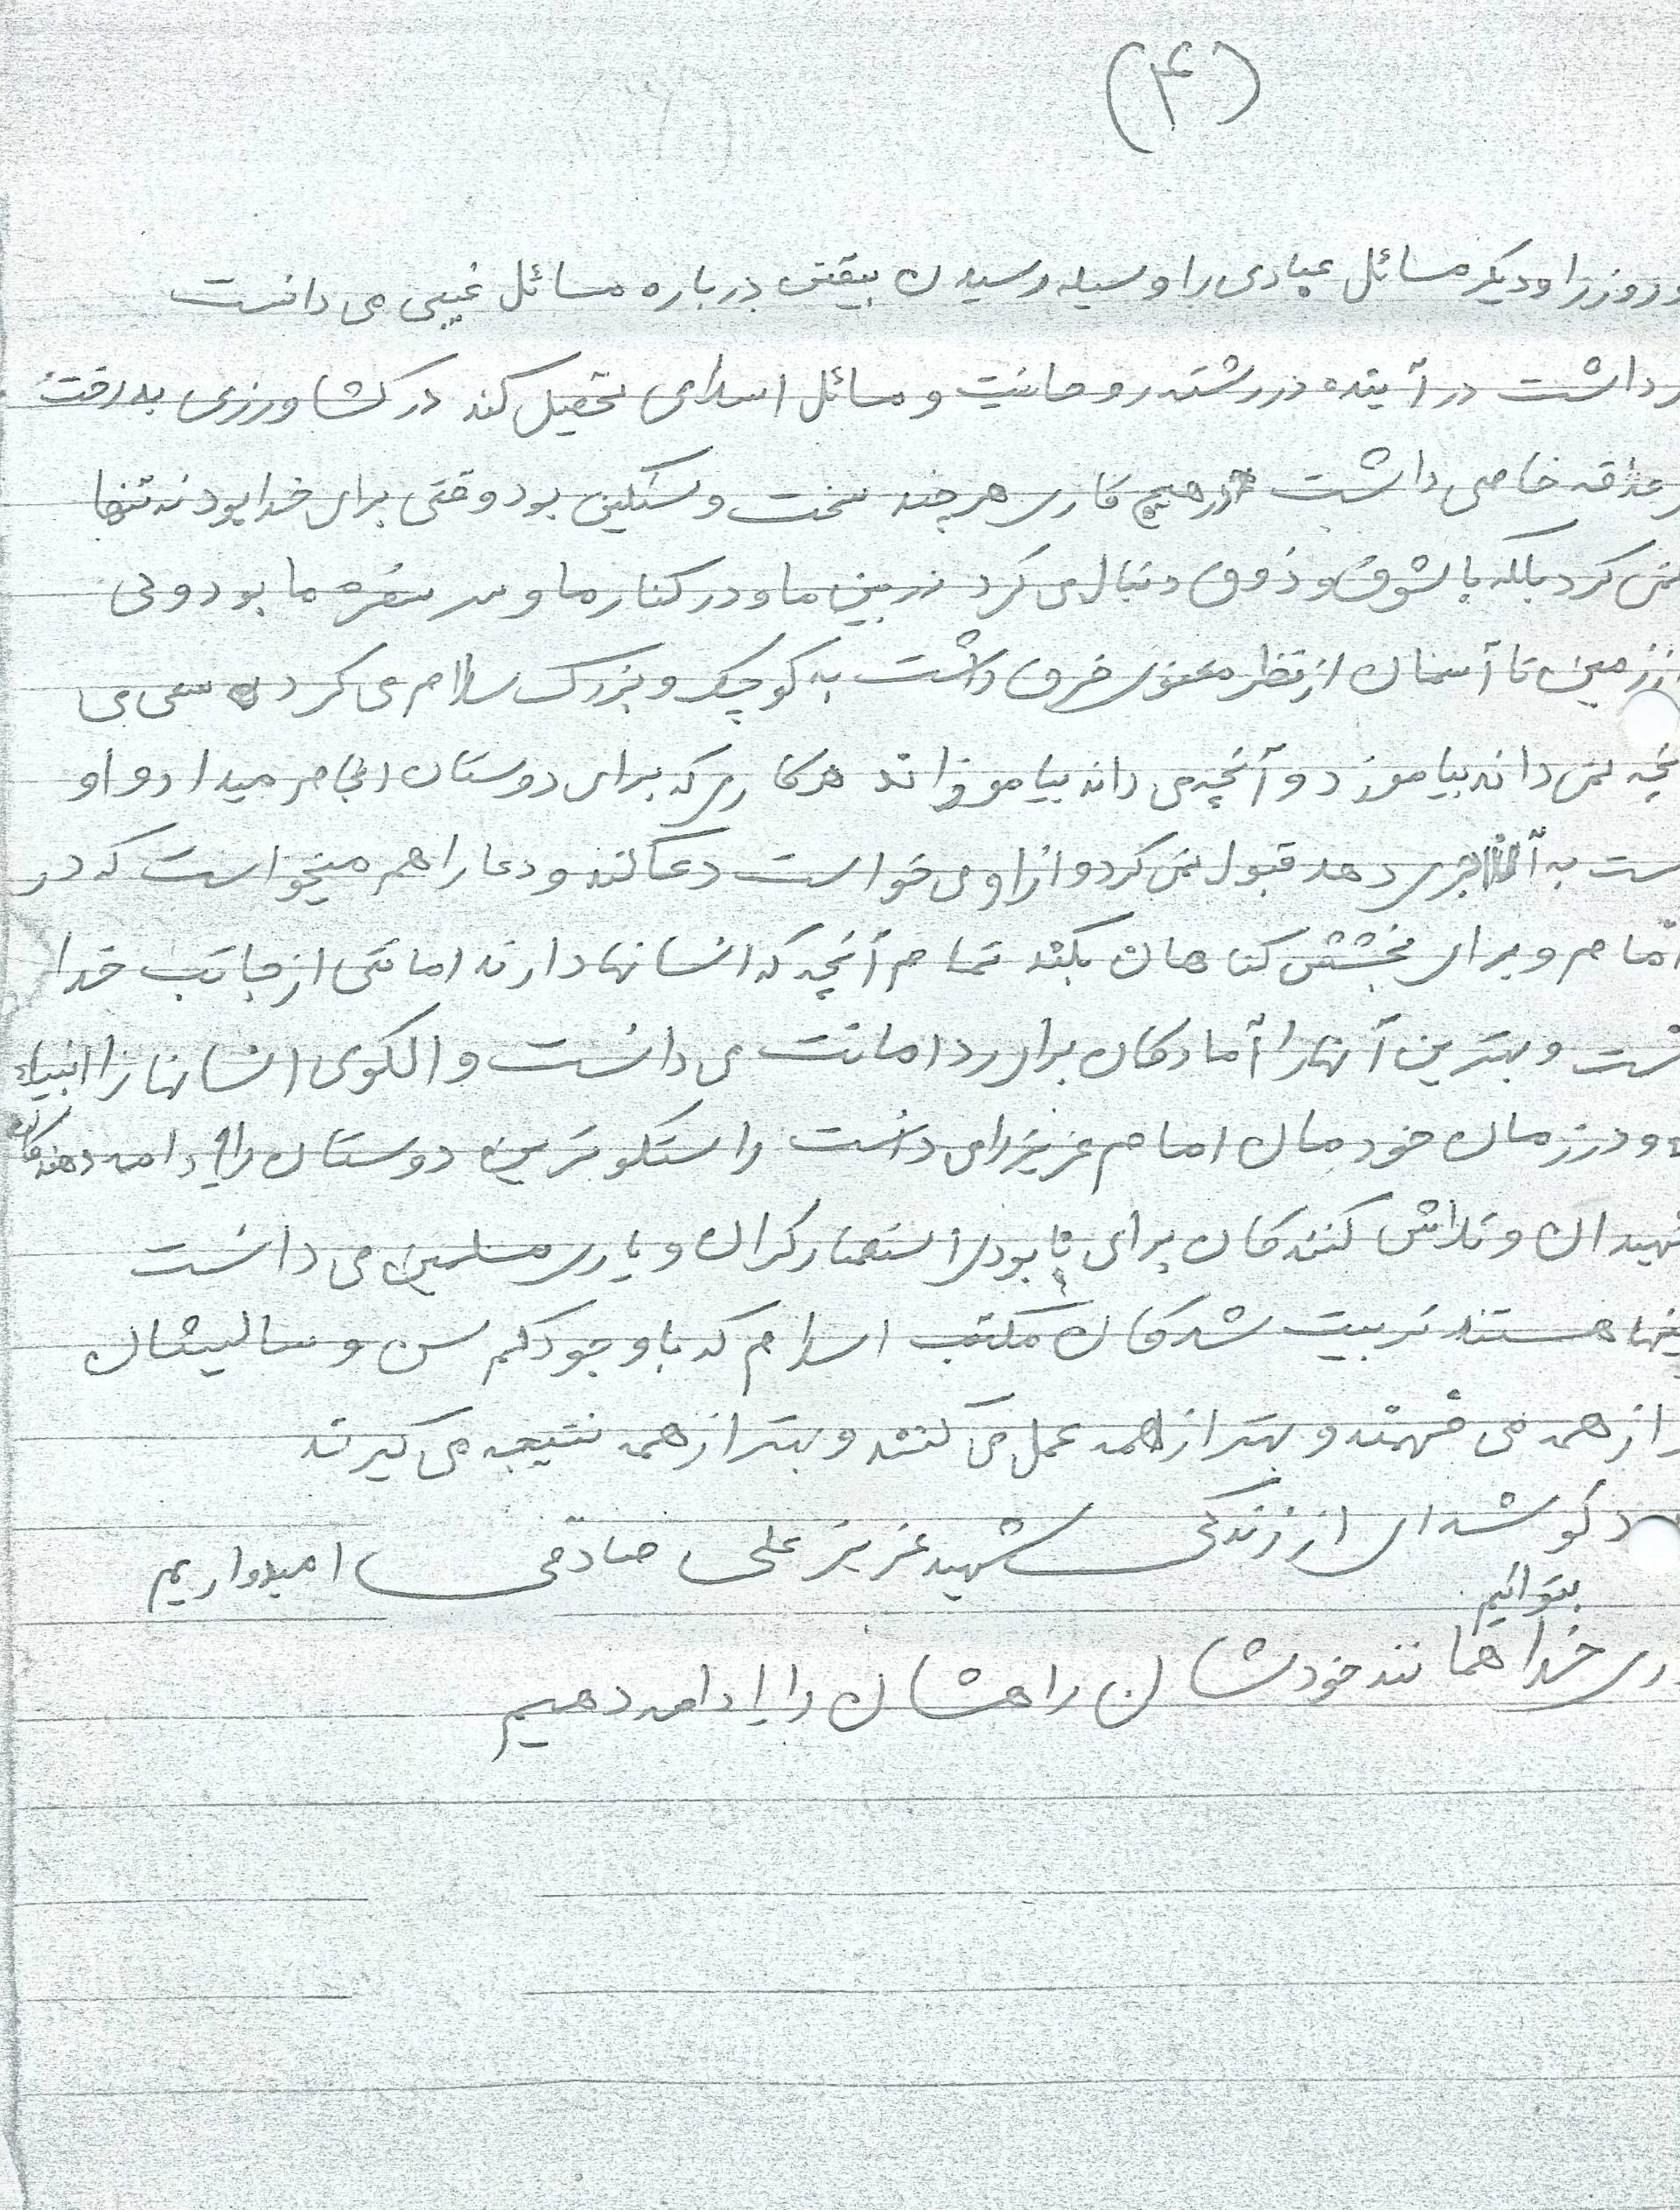 (۴)
و روزرا و دیگر مسائل عبادی را وسیله رسیدن بیقین درباره مسائل غیبی می دانست
داشت در آینده در رشته روحانیت و مسائل اسلامی تحصیل کند در کشاورزی بدرفت
علاقه خاصی داشت در هیچ کاری هر چند سخت و سنگین بود وقتی برای خدا بود نه تنها
نمی کرد بلکه با شوق و ذوق دنبال می کرد در بین ما و در کنار ما و سر سفره ما بود ولی
از زمین تا آسمان از نظر معنوی فرق داشت به کوچک و بزرگ سلام می کرد سعی می
نچه نمی داند بیاموزد و آنچه می داند بیاموزاند هر کاری که برای دوستان انجام میداد و او
ست به دهد قبول نمی کرد و از او می خواست دعا کند و دعا را هم میخواست که در
امام و برای بخشش گناهان بکند تمام آنچه که انسانها دارند امانتی از جانب خدا
نست و بهترین آنها را آمادگان برای رد امانت می دانست و الگوی انسانها را انبیاء
و در زمان خودمان امام عزیز را می دانست راستگو ترین دوستان را ادامه دهندگان
شهیدان و تلاش کنندگان برای نابودی استعمارگران و یاری مسلمین می دانست
ینها هستند تربیت شدگان مکتب اسلام که با وجود کم سن و سالیشان
از همه می فهمند و بهتر از همه عمل می کنند و بهتر از همه نتیجه می گیرند
د گوشه ای از زندگی شهید عزیز علی صادقی امیدواریم
بتوانیم
ری خدا همانند خودشان راهشان را ادامه دهیم